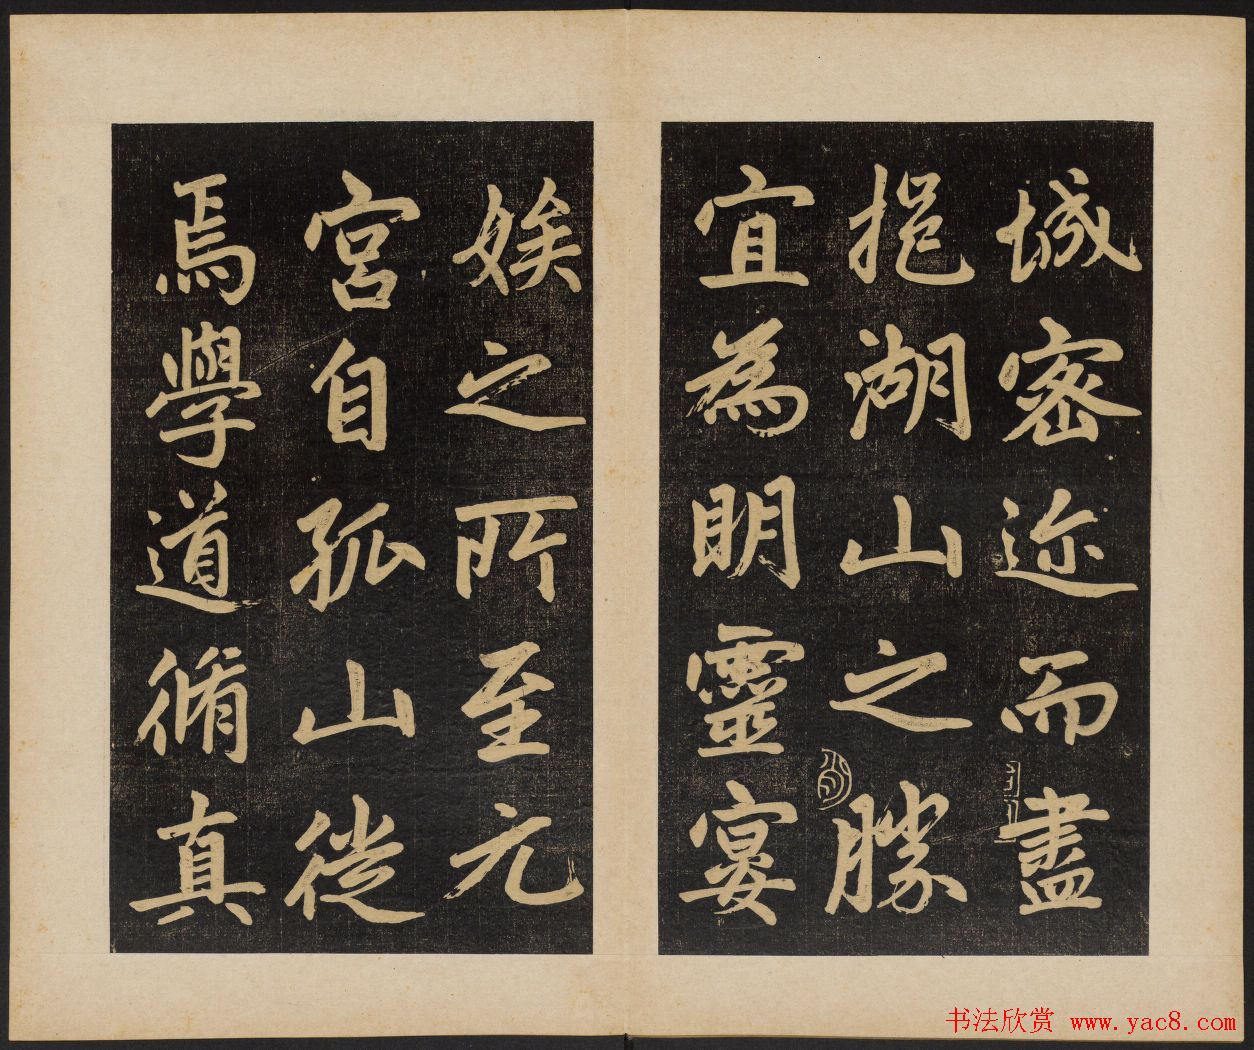 城密迩而盡
挹湖山之勝
宜為明靈宴
娭之所至元
宮自孤山徙
焉學道脩真
书法欣赏 www.yac8.com